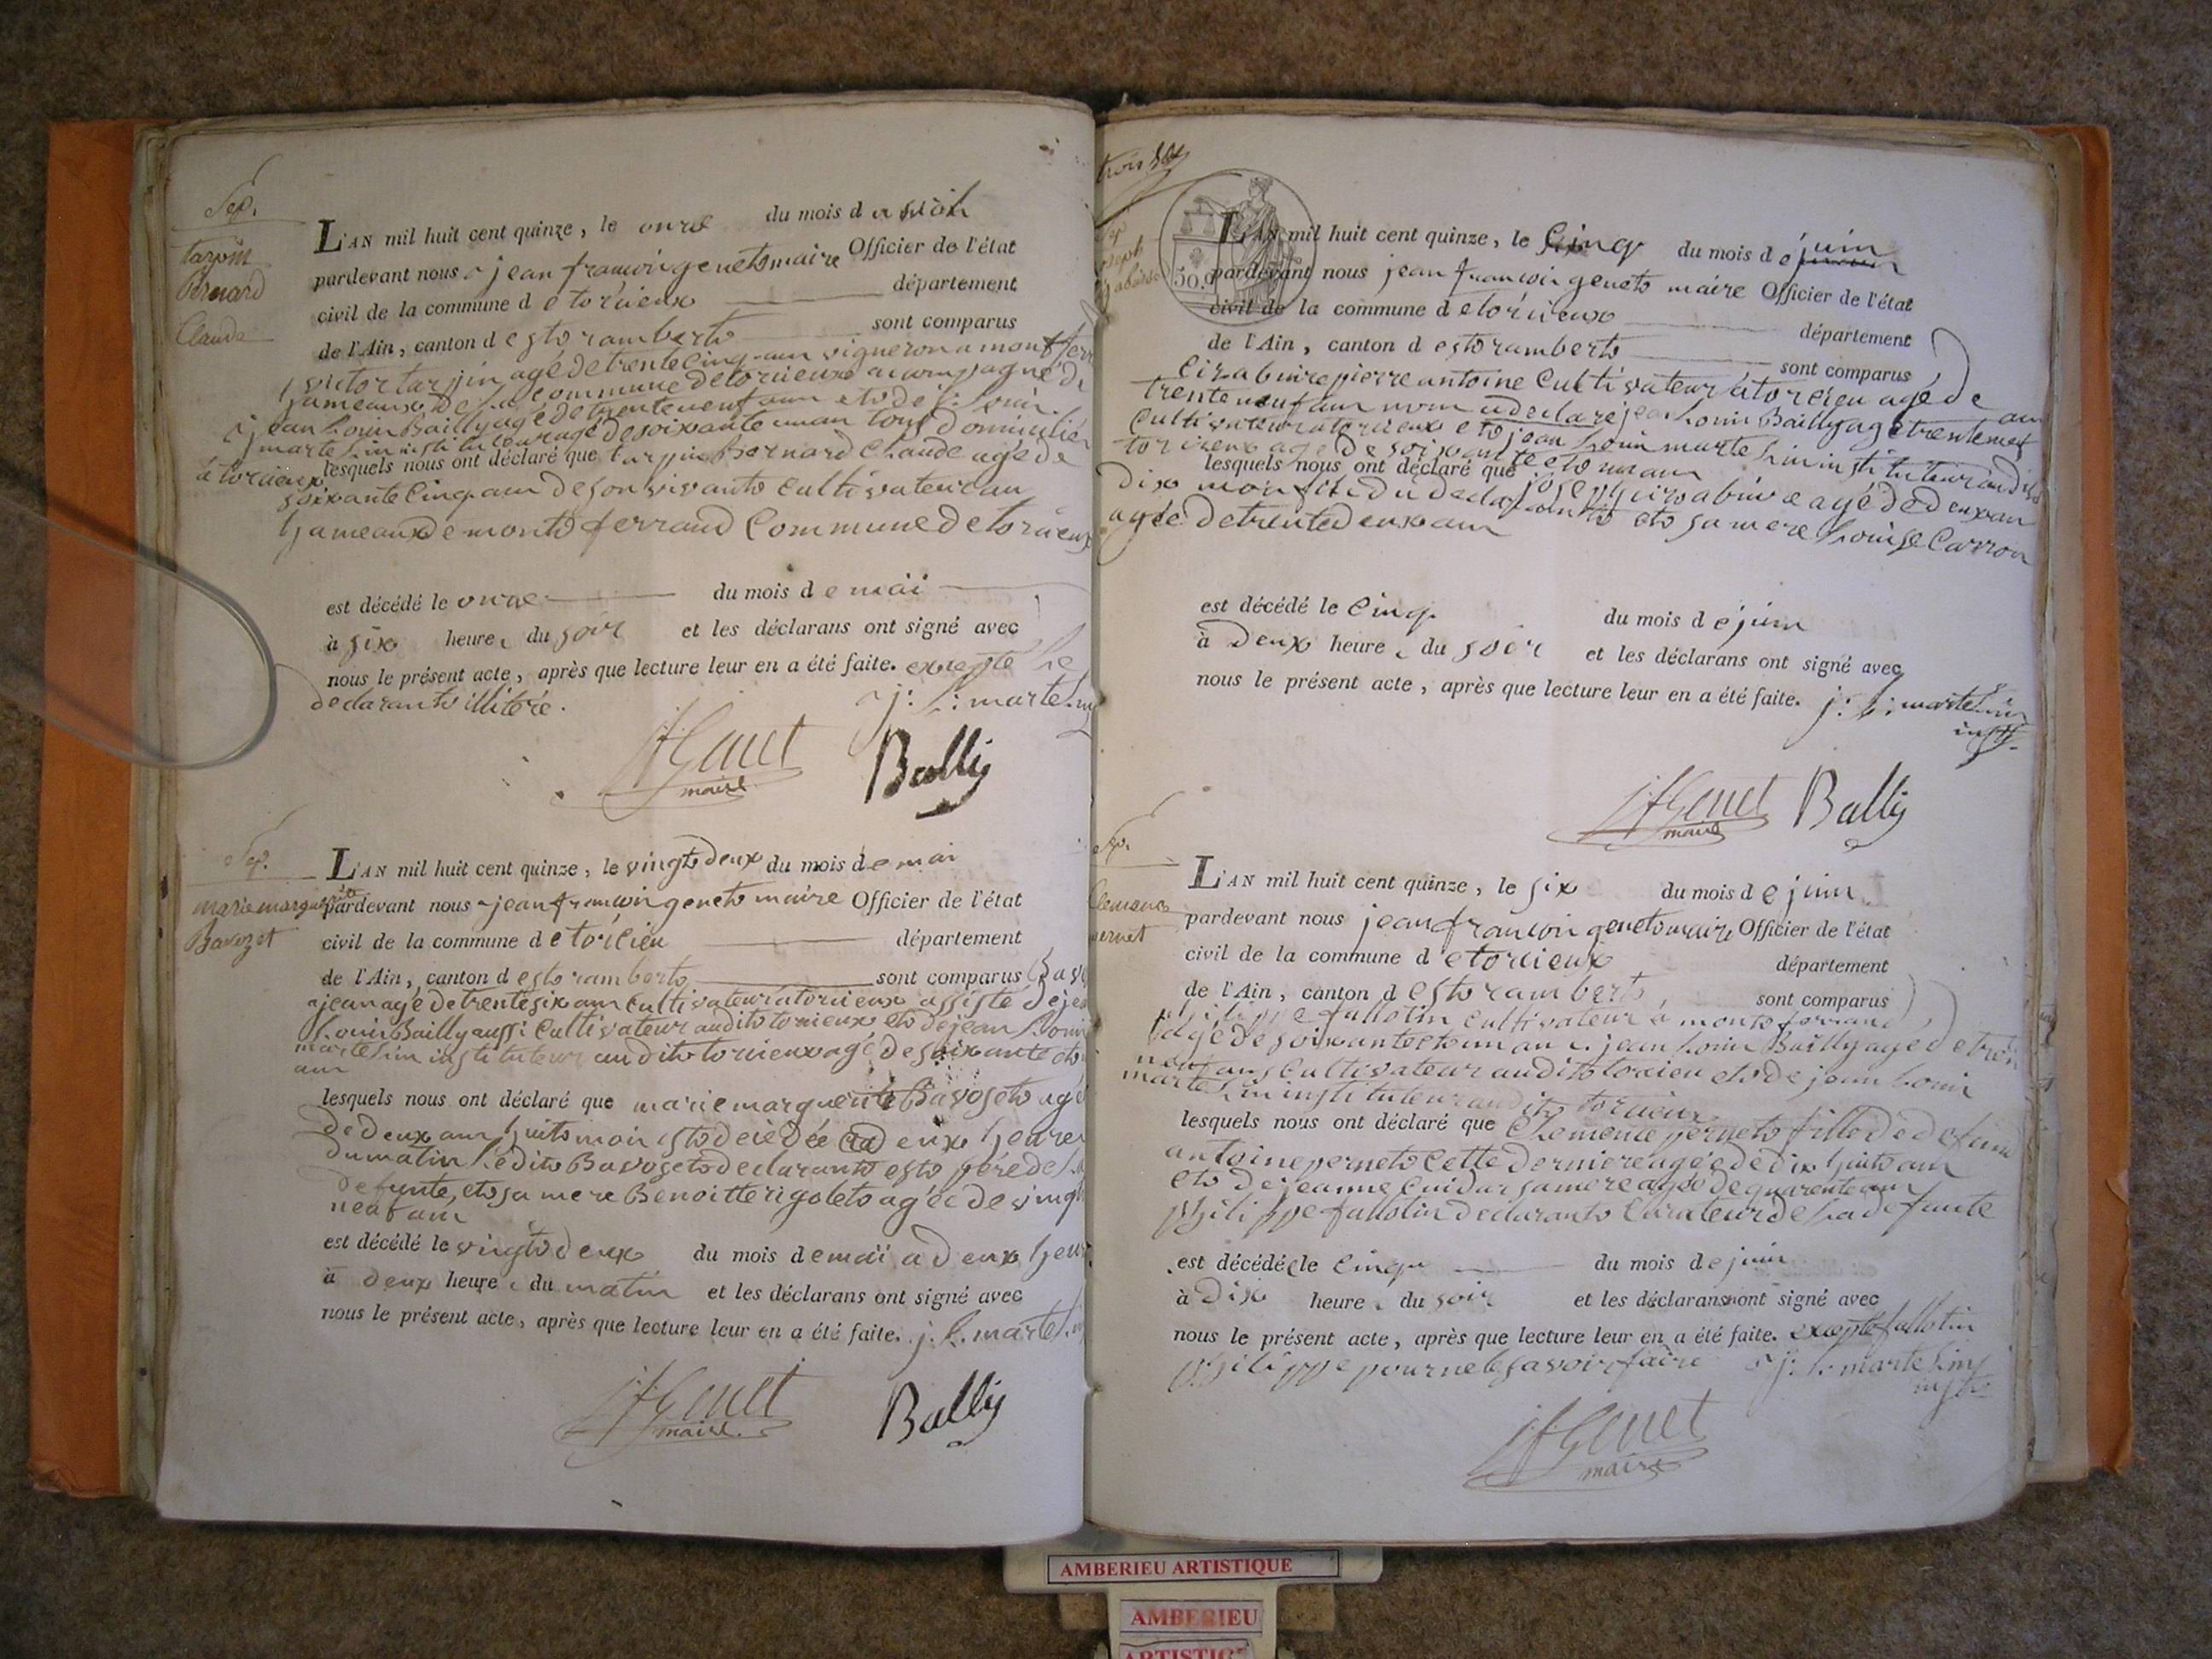 Sep.
tarpin
Bernard
Claude
L'AN mil huit cent quinze, le onze du mois d
pardevant nous jean francoin genets maire Officier de l'état
civil de la commune d etorcieux département
de l'Ain, canton d estoramberts sont comparus
victor tarpin agé de trente cinq ans vigneron a montferr
hameaux de la commune de torcieux acompagné de
jean Louin Bailly agé de trente neuf ans ets de j: Louin
martelin instituteur agé de soixante un an tous domicilié
à torcieux lesquels nous ont déclaré que tarpin Bernard Claude agé de
soixante Cinq ans de son vivants Cultivateur au
hameaux de monts ferrand Commune de torcieux
est décédé le onze du mois d e mai
à six heure du soir et les déclarans ont signé avec
nous le présent acte, après que lecture leur en a été faite. excepté Le
declarants illitéré. j: L: martelin
JFGenet
maire
Bally
Sep.
marie marguerite
Bavozet
L'AN mil huit cent quinze, le vingts deux du mois d e mai
pardevant nous jean francoin genets maire Officier de l'état
civil de la commune d e torcieu département
de l'Ain, canton d estoramberts sont comparus Bavo
jean agé de trente six ans Cultivateur à torcieux assisté de jean
Louin Bailly aussi Cultivateur audits torcieux ets de jean Louin
martelin instituteur audits torcieux agé de soixante ets
ans
lesquels nous ont déclaré que marie marguerite Bavosets agé
de deux ans huits mois ests décédée a deux heures
du matin Ledits Bavosets declarants ests père de La
defunte, ets sa mere Benoitte rigolets agée de vingt
neuf ans
est décédé le vingts deux du mois d e mai a deux heur
à deux heure du matin et les déclarans ont signé avec
nous le présent acte, après que lecture leur en a été faite. j. L. martelin
JFGenet
maire
Bally
50.
L'AN mil huit cent quinze, le Cinq du mois d e juin
pardevant nous jean francoin genets maire Officier de l'état
civil de la commune d etorcieux département
de l'Ain, canton d estoramberts sont comparus
Cizabuire pierre antoine Cultivateur à torcieu agé de
trente neuf ans nom a declaré jean Louin Bailly agé trente neuf ans
Cultivateur a torcieux ets jean Louin martelin instituteur audits
torcieux agé de soixante ets un ans
lesquels nous ont déclaré que joseph Cizabuire agé de deux ans
dix mois fils du declarants ets sa mere Louise Carron
agée de trente deux ans
est décédé le Cinq du mois d e juin
à Deux heure du soir et les déclarans ont signé avec
nous le présent acte, après que lecture leur en a été faite. j: L: martelin
inst.
JFGenet
maire
Bally
Sep.
Clemence
pernet
L'AN mil huit cent quinze, le six du mois d e juin
pardevant nous jean francoin genets maire Officier de l'état
civil de la commune d etorcieux département
de l'Ain, canton d estoramberts, sont comparus
philippe fallotin Cultivateur à monts ferrand
agé de soixante ets un an jean Louin Bailly agé de trente
neuf ans Cultivateur audits torcieu ets de jean Louin
martelin instituteur audits torcieux
lesquels nous ont déclaré que Clemence pernets fille de defunt
antoine pernets Cette derniere agée de dix huits ans
ets de jeanne Cuidar sa mere agée de quarente ans
philippe fallotin declarants Curateur de La defunte
est décédée le Cinq du mois d e juin
à Dix heure du soir et les déclarans ont signé avec
nous le présent acte, après que lecture leur en a été faite. excepté fallotin
philippe pour ne le savoir faire j: L: martelin
inst.
JFGenet
maire
AMBERIEU ARTISTIQUE
AMBERIEU
ARTISTIC